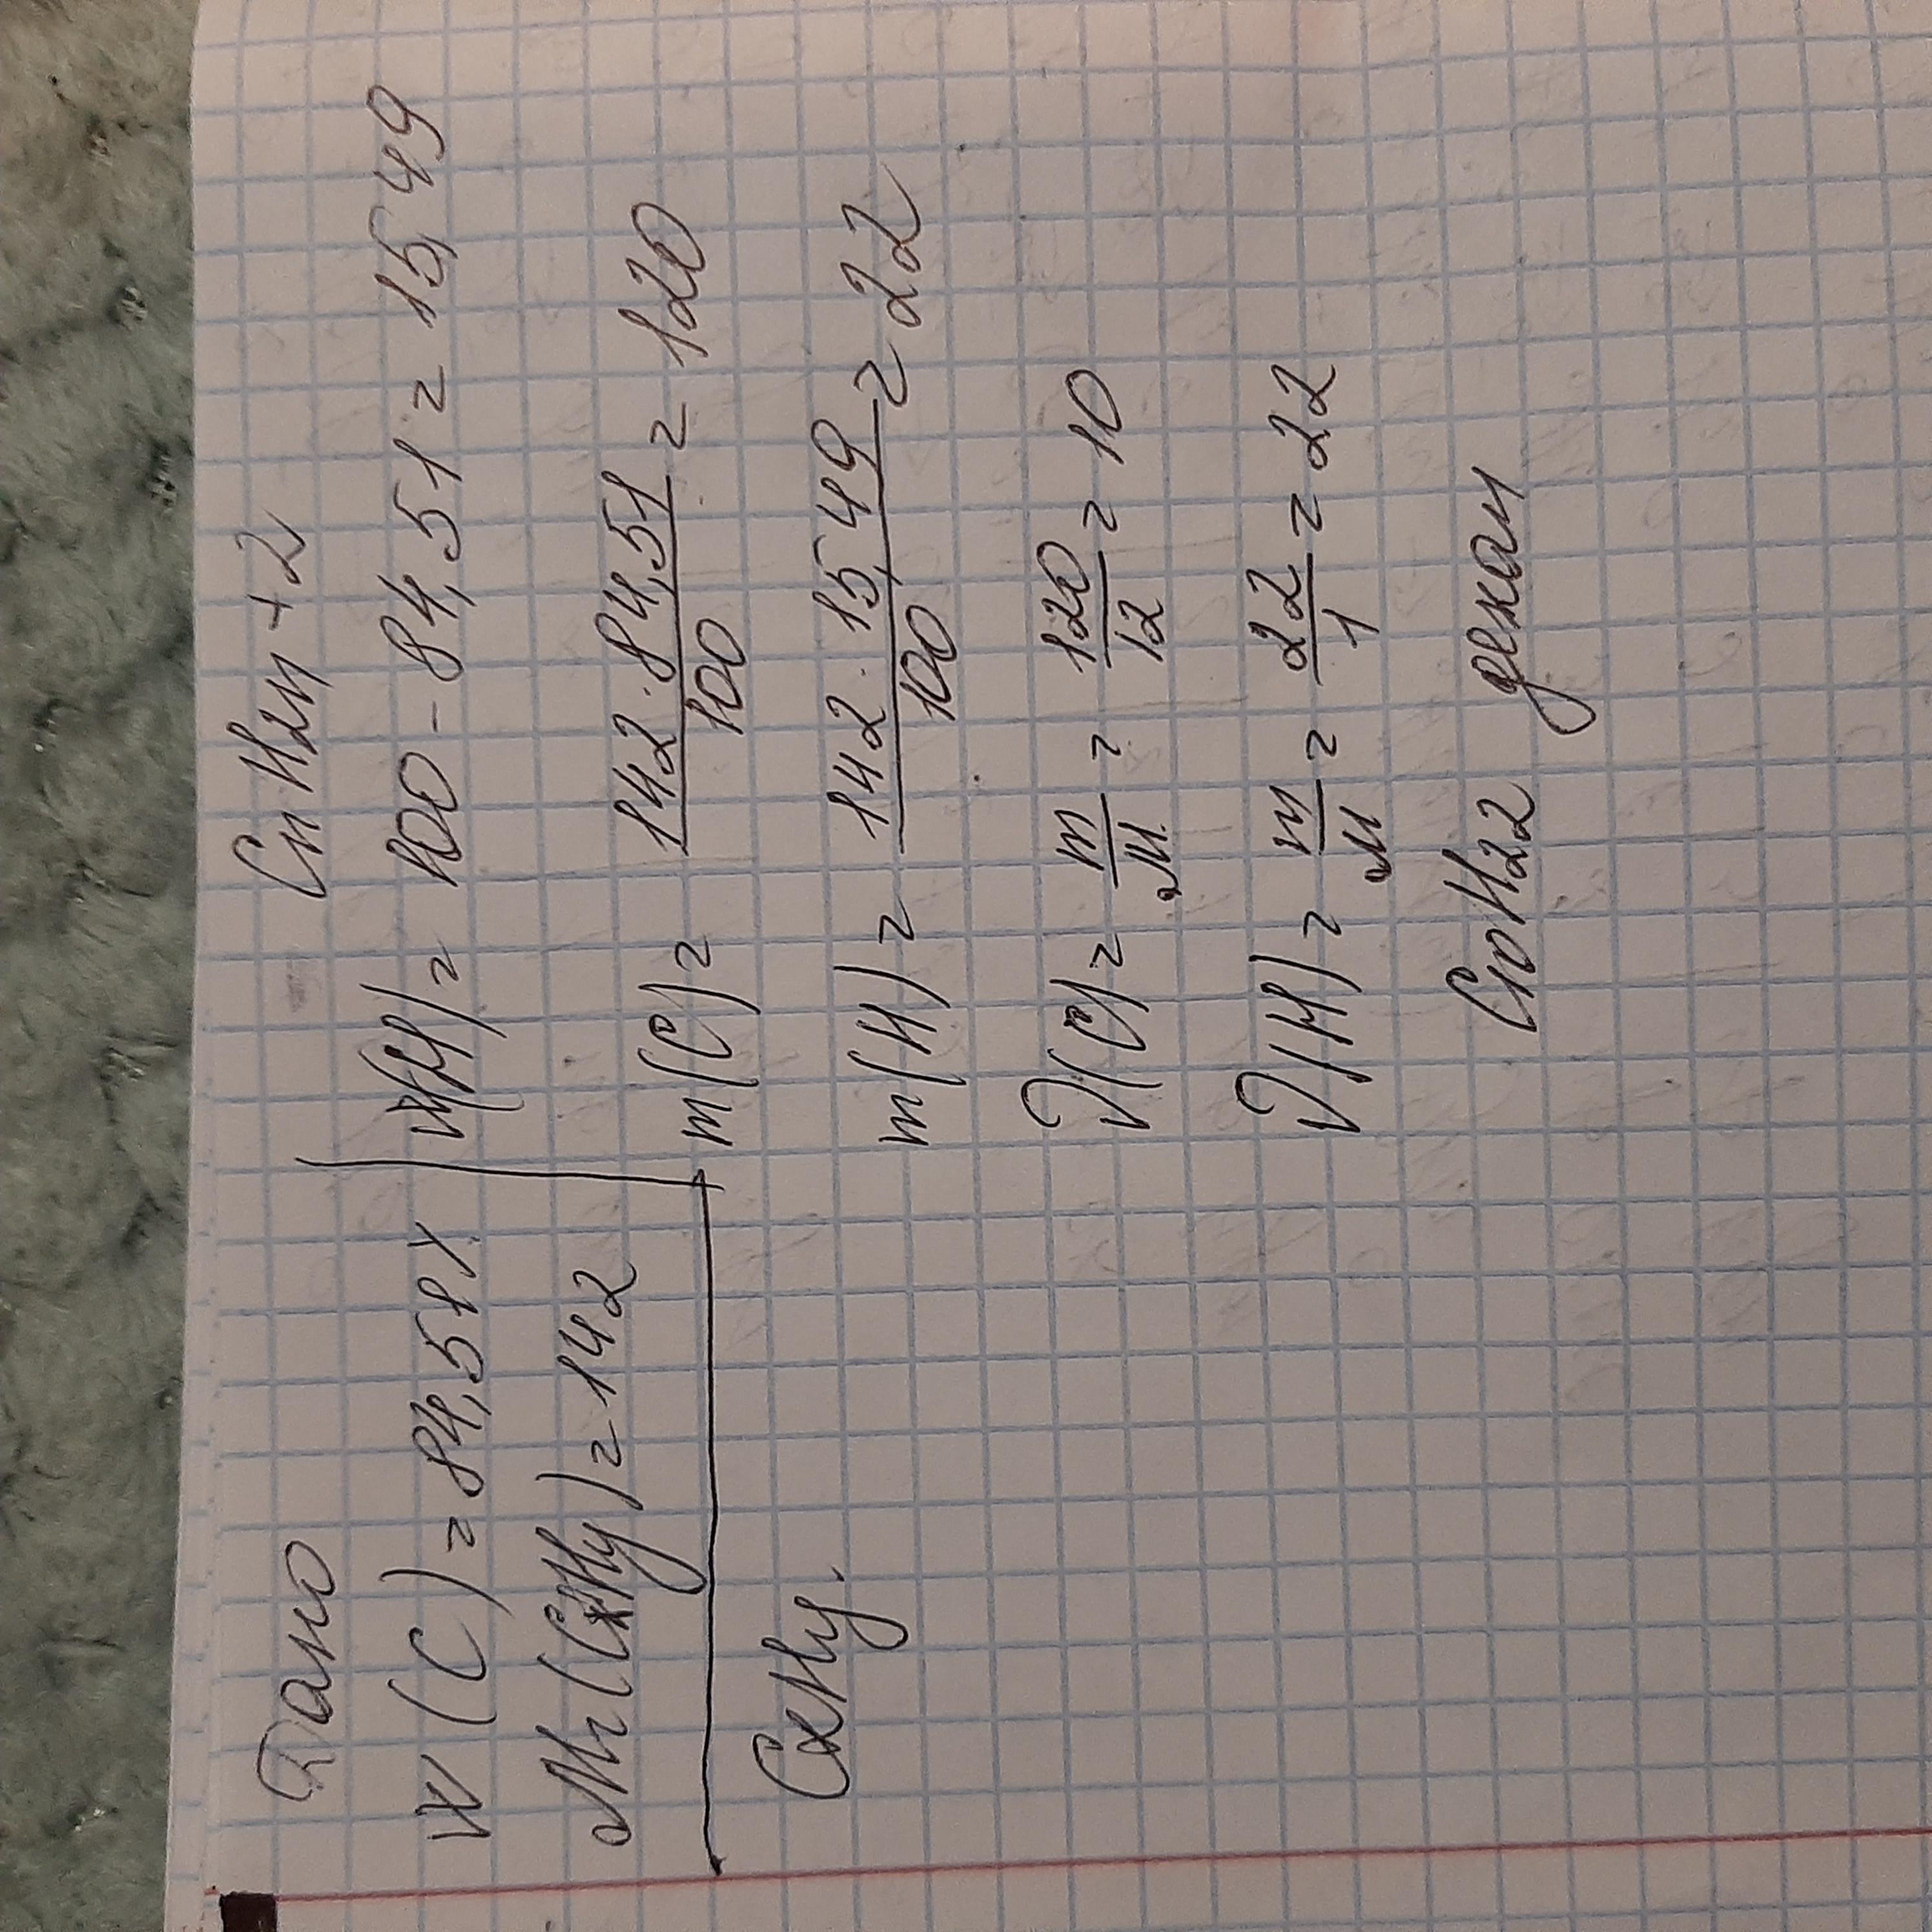 Дано
w(C) = 84,51%
Mr(CxHy) = 142
CxHy.
CnH2n+2
w(H) = 100 - 84,51 = 15,49
m(C) = 142 · 84,51 / 100 = 120
m(H) = 142 · 15,49 / 100 = 22
ν(C) = m / M = 120 / 12 = 10
ν(H) = m / M = 22 / 1 = 22
C10H22 декан